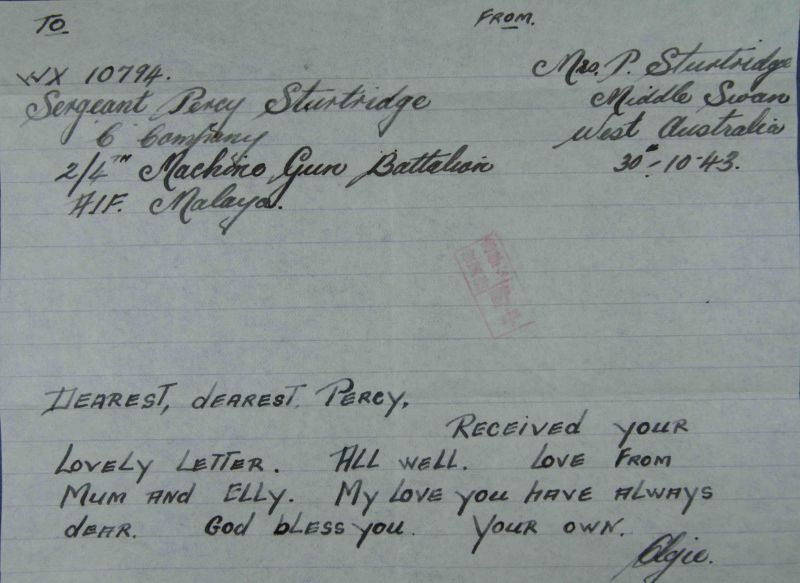 TO
FROM.
WX 10794.
Sergeant Percy Sturtridge
C Company
2/4TH Machine Gun Battalion
AIF. Malaya.
Mrs. P. Sturtridge
Middle Swan
West Australia
30TH-10-43.
DEAREST, dEAREST. PERCY,
RECEIVED YOUR
LOVELY LETTER. ALL WELL. LOVE FROM
MUM AND ELLY. MY LOVE YOU HAVE ALWAYS
dEAR. GOD bLESS YOU. YOUR OWN.